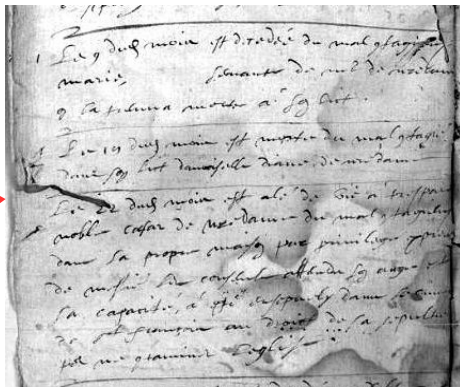 Le 9 dud mois est decedée du mal 9tagieux
marie, servante de mr de nredame
9 la trouva morte a son lict.
Le 19 dud mois est morte du mal 9tagieux
dans son lict damoiselle diane de nredame
Le 22 dud mois est alé de vie a trespas
noble cesar de nredame du mal 9tagieux
dans sa propre maison par privilege
de messrs les consuls attendu son aage et
sa capacité, a esté ensepvely dans
de st françois au droict de sa sepultre
ne 9taminer l'eglise